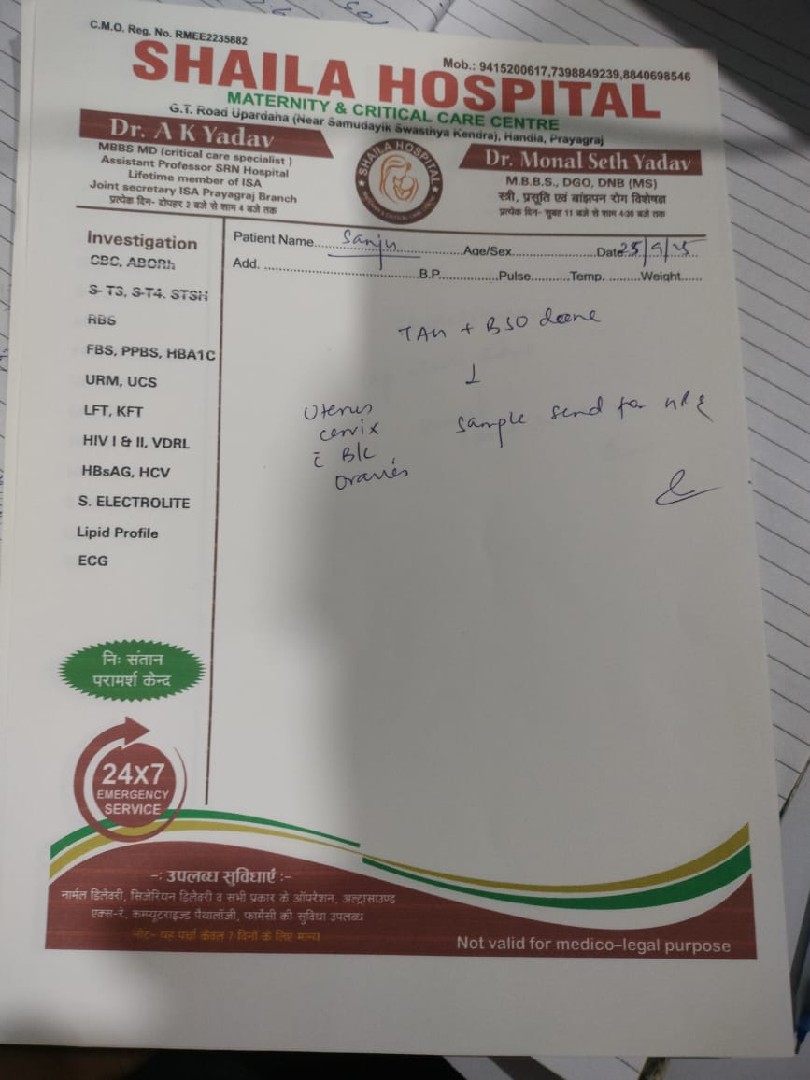 C.M.O. Reg. No. RMEE2235682
Mob.: 9415200617,7398849239,8840698546
SHAILA HOSPITAL
MATERNITY & CRITICAL CARE CENTRE
G.T. Road Upardaha (Near Samudayik Swasthya Kendra), Handia, Prayagraj
Dr. A K Yadav
MBBS MD (critical care specialist)
Assistant Professor SRN Hospital
Lifetime member of ISA
Joint secretary ISA Prayagraj Branch
प्रत्येक दिन- दोपहर 2 बजे से शाम 4 बजे तक
SHAILA HOSPITAL
Dr. Monal Seth Yadav
M.B.B.S., DGO, DNB (MS)
स्त्री, प्रसूति एवं बांझपन रोग विशेषज्ञ
प्रत्येक दिन- सुबह 11 बजे से शाम 4:30 बजे तक
Patient Name..... Sanju .....Age/Sex.............Date 25/9/25
Add. ..............................B.P..............Pulse..........Temp. .........Weight......
Investigation
CBC, ABORh
S- T3, S-T4, STSH
RBS
FBS, PPBS, HBA1C
URM, UCS
LFT, KFT
HIV I & II, VDRL
HBsAG, HCV
S. ELECTROLITE
Lipid Profile
ECG
TAH + BSO doone
↓
Uterus
cervix
c̄ B/L
ovaries
sample send for HPE
निः संतान
परामर्श केन्द
24x7
EMERGENCY
SERVICE
-: उपलब्ध सुविधाएँ :-
नार्मल डिलेवरी, सिजेरियन डिलेवरी व सभी प्रकार के ऑपरेशन, अल्ट्रासाउण्ड
एक्स-रे, कम्प्यूटराइज्ड पैथालॉजी, फार्मेसी की सुविधा उपलब्ध
नोट- यह पर्चा केवल 7 दिनों के लिए मान्य
Not valid for medico-legal purpose